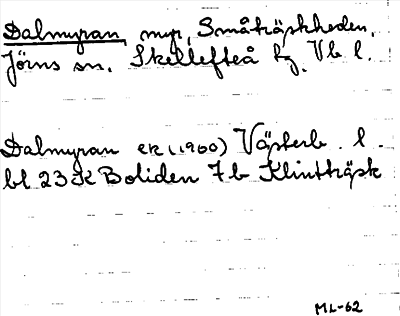 Dalmyran, myr, Småträskheden,
Jörns sn. Skellefteå tg. Vb l.
Dalmyran ek (1960) Västerb. l.
bl 23 K Boliden 7 b Klintträsk
ML-62